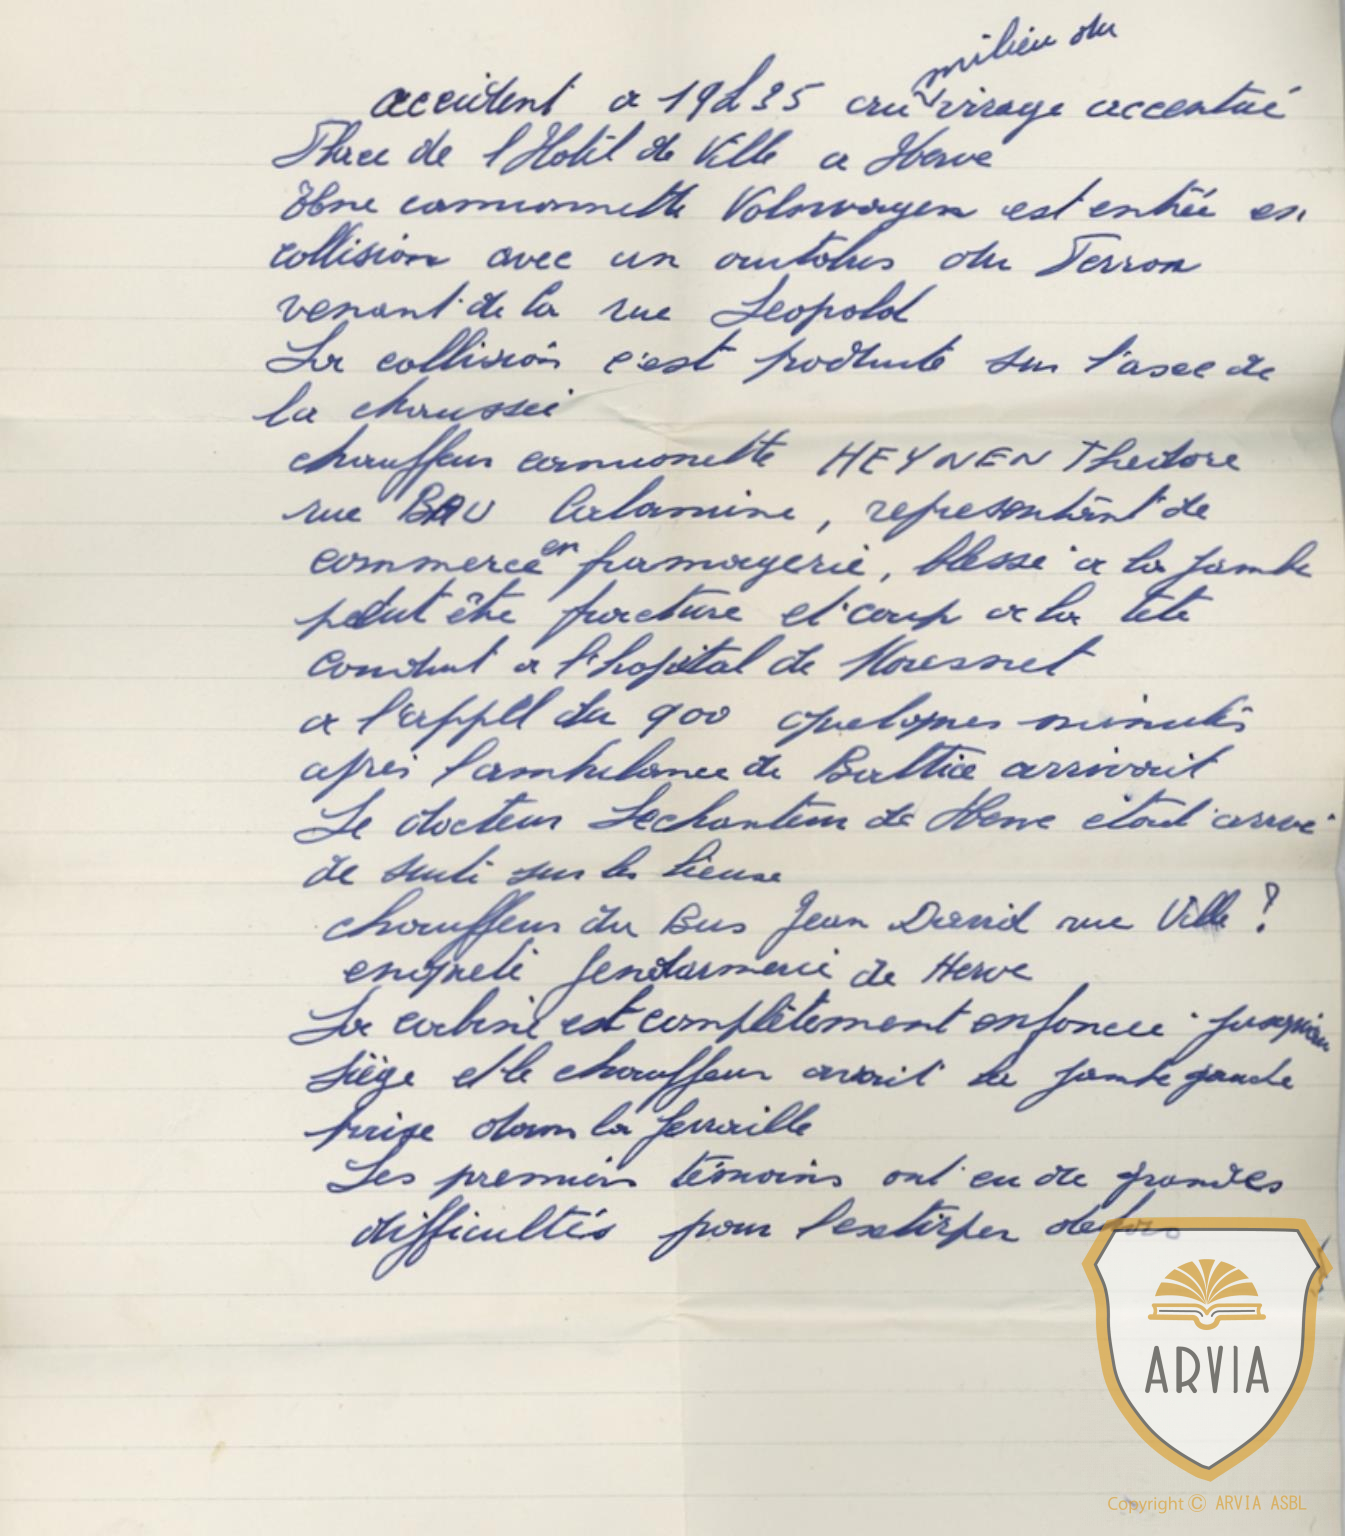 milieu du
accident a 19h35 au virage accentué
Place de l'Hotel de Ville a Herve
Une camionnette Volswagen est entrée en
collision avec un autobus du Perron
venant de la rue Leopold
La collision c'est produite sur l'axee de
la chaussée
chauffeur camionette HEYNEN Theodore
rue BAU Calamine, representant de
commerce en fromagerie, blessé a la jambe
peut être fracture et coup a la tete
conduit a l'hopital de Moresnet
a l'appel du 900 quelques minutes
apres l'ambulance de Battice arrivait
Le docteur Lechanteur de Herve etait arrivé
de suite sur les lieux
chauffeur du Bus Jean David rue Ville ?
enquete gendarmerie de Herve
La cabine est complètement enfoncee jusqu'au
siège et le chauffeur avait la jambe gauche
prise dans la ferraille
Les premiers témoins ont eu de grandes
difficultés pour l'extirper
ARVIA
Copyright © ARVIA ASBL